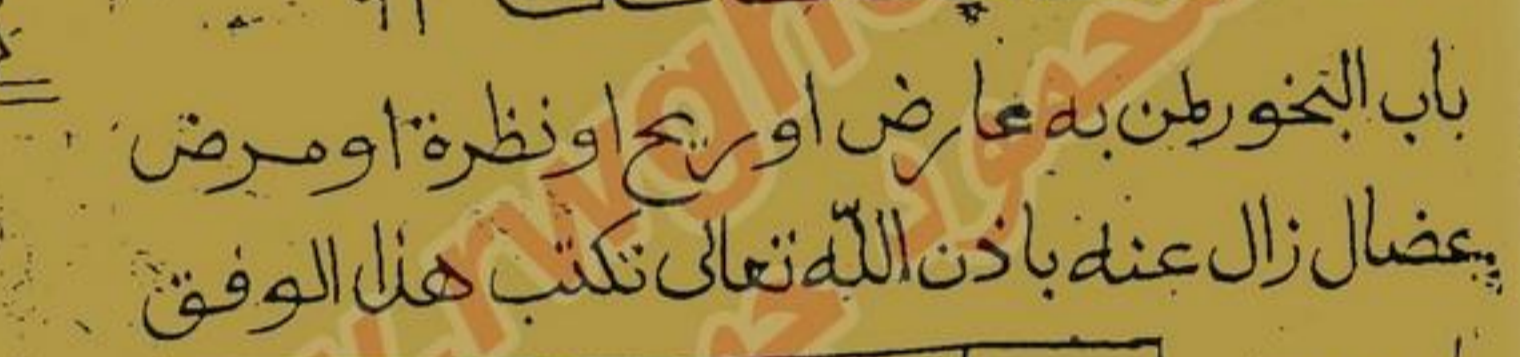 باب البخور لمن به عارض او ريح او نظرة او مرض
عضال زال عنه باذن الله تعالى تكتب هذا الوفق